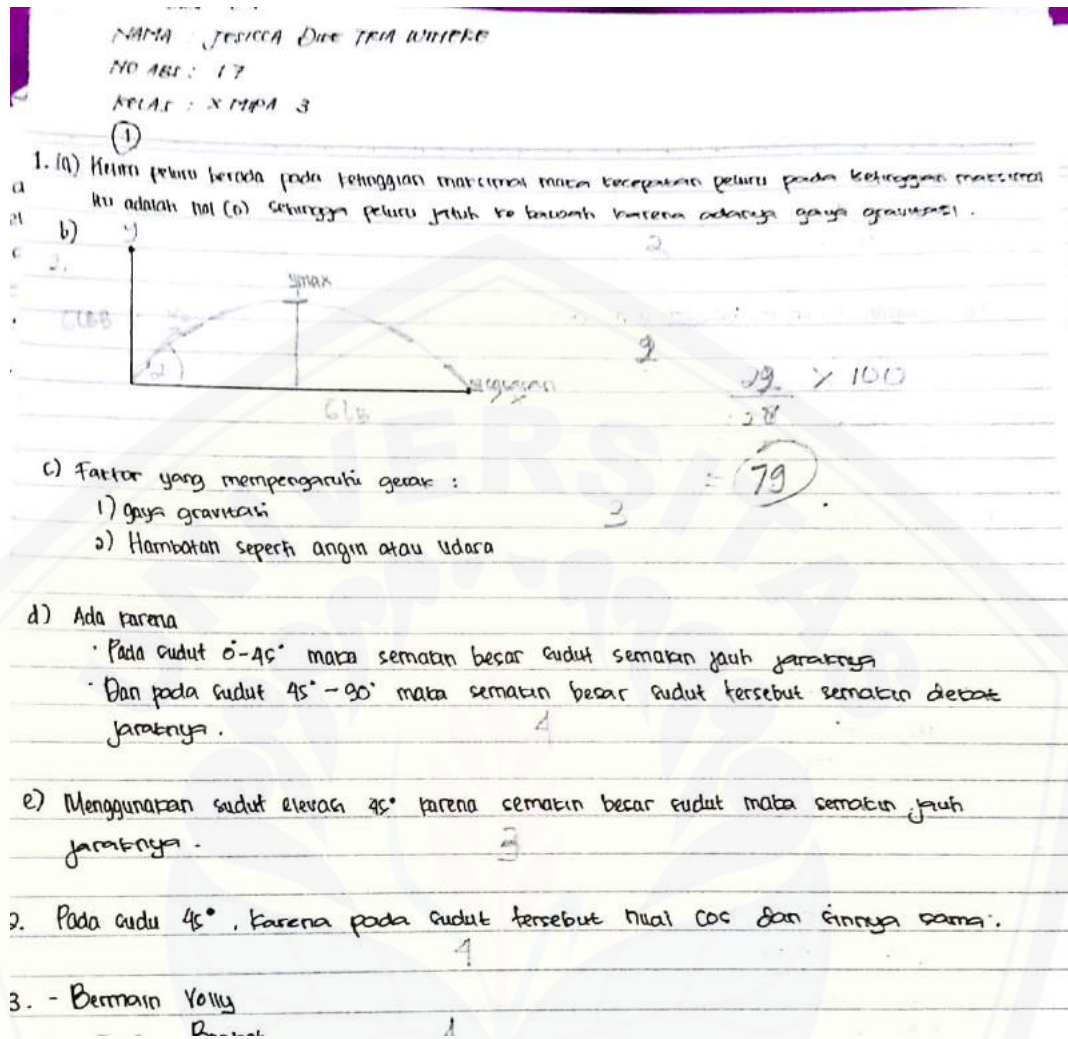 NAMA : JESICCA
NO ABS : 17
KELAS : X MIPA 3
1
1. (a) Ketika peluru berada pada ketinggian maksimal maka kecepatan peluru pada ketinggian maksimal
itu adalah nol (0) sehingga peluru jatuh ke bawah karena adanya gaya gravitasi.
2
b) y
2.
ymax
GLBB
GLB
x
2
29 × 100
28
= 79
c) Faktor yang mempengaruhi gerak :
1) gaya gravitasi
3
2) Hambatan seperti angin atau udara
d) Ada karena
· Pada sudut 0°-45° maka semakin besar sudut semakin jauh jaraknya
· Dan pada sudut 45° - 90° maka semakin besar sudut tersebut semakin dekat
jaraknya.
4
e) Menggunakan sudut elevasi 45° karena semakin besar sudut maka semakin jauh
jaraknya.
3
2. Pada sudu 45°, karena pada sudut tersebut nilai cos dan sinnya sama.
4
3. - Bermain Volly
4
UNIVERSITAS